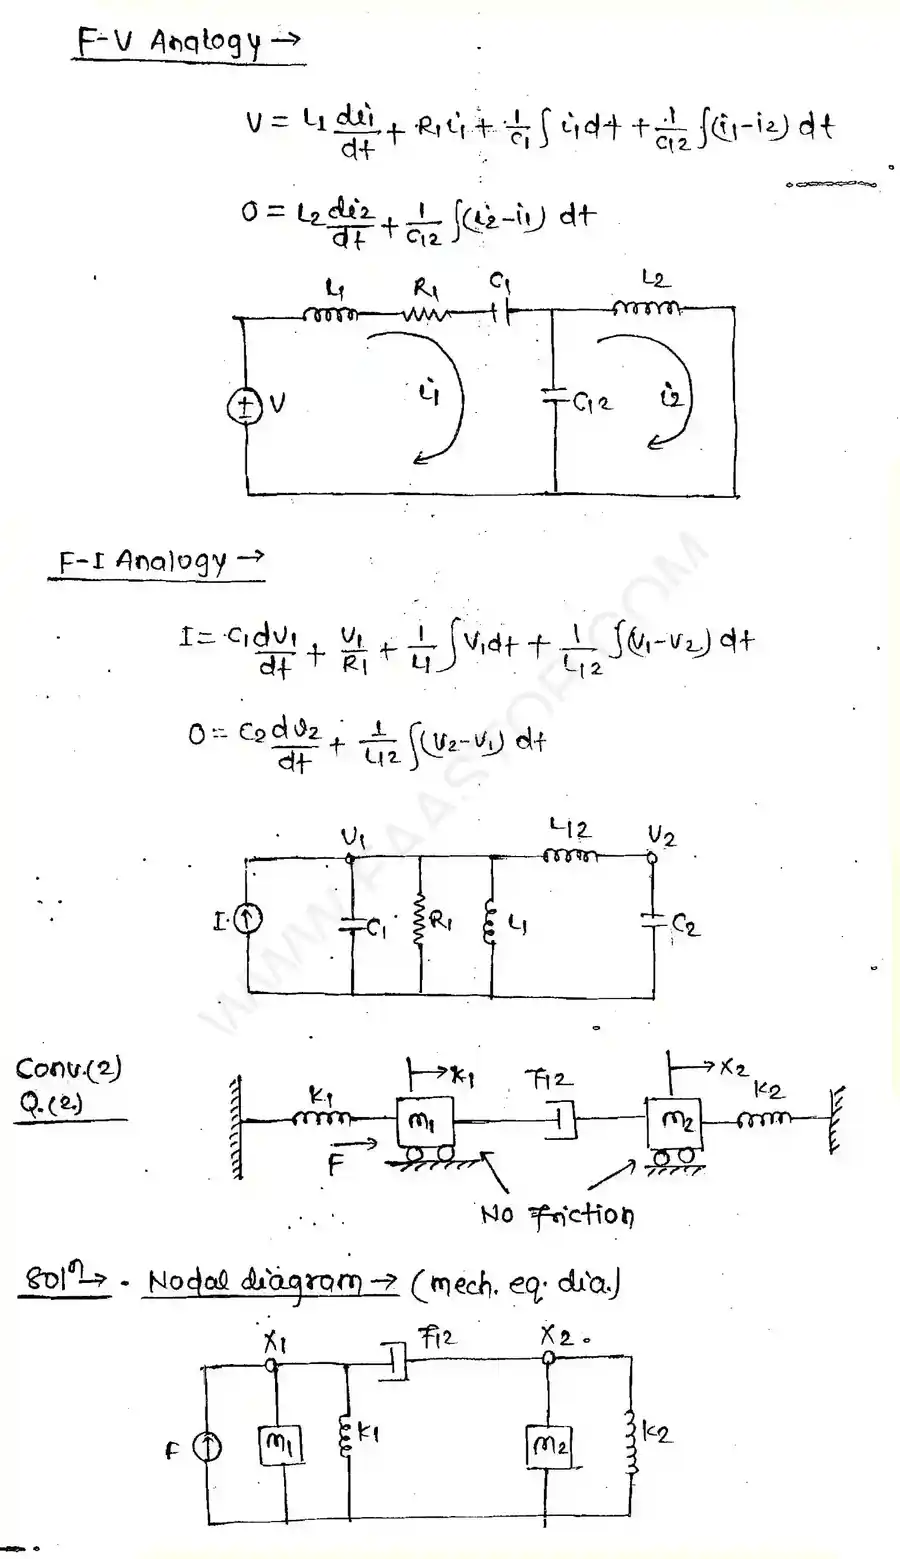 F-V Analogy →
V = L1 di1/dt + R1 i1 + 1/C1 ∫ i1 dt + 1/C12 ∫(i1-i2) dt
0 = L2 di2/dt + 1/C12 ∫(i2-i1) dt
L1 R1 C1 L2
V i1 C12 i2
F-I Analogy →
I = C1 dv1/dt + v1/R1 + 1/L1 ∫ v1 dt + 1/L12 ∫(v1-v2) dt
0 = C2 dv2/dt + 1/L12 ∫(v2-v1) dt
v1 L12 v2
I C1 R1 L1 C2
Conv.(2)
Q.(2.)
K1 x1 F12 x2 K2
F m1 m2
No friction
Solⁿ → . Nodal diagram → (mech. eq. dia.)
x1 F12 x2
F m1 K1 m2 K2